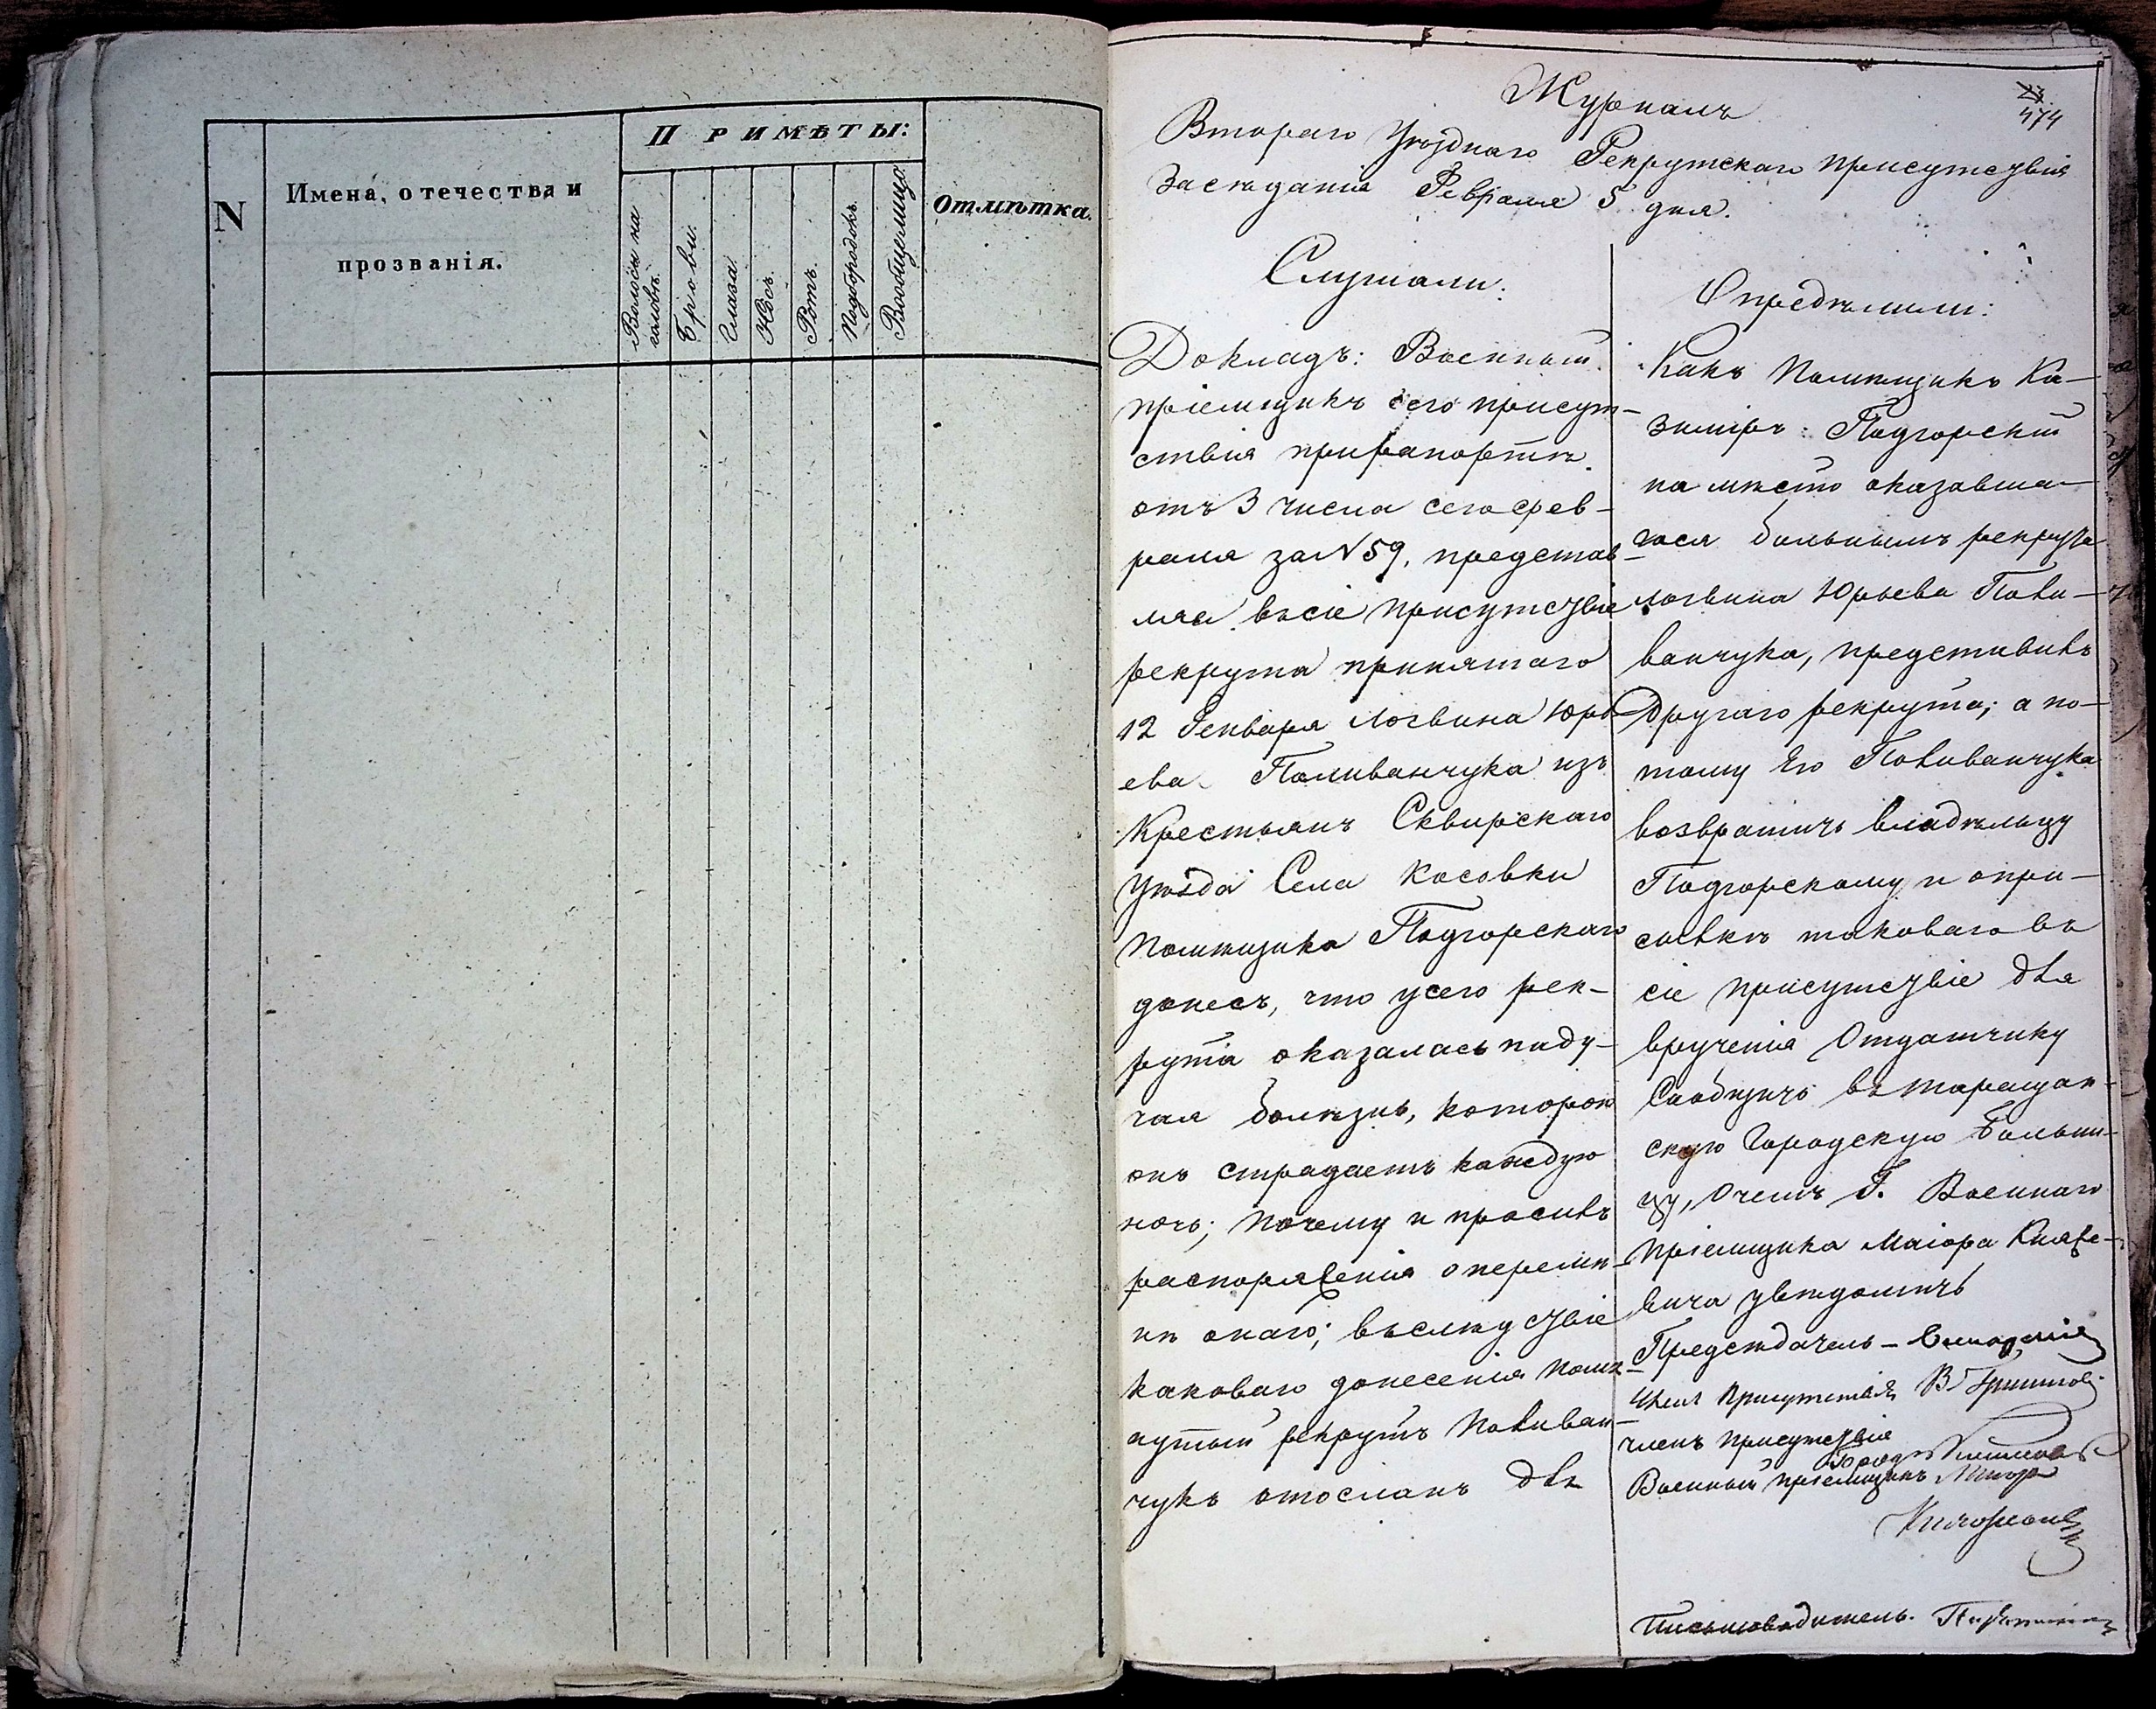 N
Имена, отечества и
прозванія.
ПРИМѢТЫ:
Волосы на
головѣ.
Брови.
Глаза.
Носъ.
Ротъ.
Подбородокъ.
Вообще лицо.
Отмѣтка.
474
Журналъ
Втораго Уѣзднаго Рекрутскаго присутствія
Засѣданія Февраля 5 дня.
Слушали:
Докладъ: Военный
пріемщикъ сего присут-
ствія при рапортѣ
отъ 3 числа сего фев-
раля за N 59, представ-
ляя въ сіе присутствіе
рекрута принятаго
12 Генваря Логвина Юрь-
ева Поливанчука изъ
Крестьянъ Сквирскаго
Уѣзда Села Косовки
помѣщика Подгорскаго
донесъ, что у сего рек-
рута оказалась паду-
чая болѣзнь, которою
онъ страдаетъ каждую
ночь; почему и просивъ
распоряженія о перемѣ-
нѣ онаго; въ слѣдствіе
каковаго донесенія помя-
нутый рекрутъ Поливан-
чукъ отосланъ для
Опредѣлили:
Какъ Помѣщикъ Ка-
зиміръ Подгорскій
на мѣсто оказавша-
гося больнымъ рекрута
Логвина Юрьева Поли-
ванчука, представивъ
другаго рекрута; а по-
тому Его Поливанчука
возвратить владѣльцу
Подгорскому и о при-
сылкѣ таковаго въ
сіе присутствіе для
врученія Отдатчику
Сообщить въ Таращан-
скую Городскую Больни-
цу, о чемъ Г. Военнаго
пріемщика Маіора
вича увѣдомить
Предсѣдатель
Членъ Присутствія
членъ присутствія
Военный пріемщикъ Маіоръ
Письмоводитель.